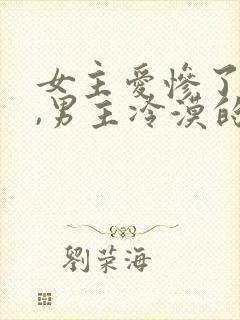 女主爱惨了
,男主冷漠的
刘荣海